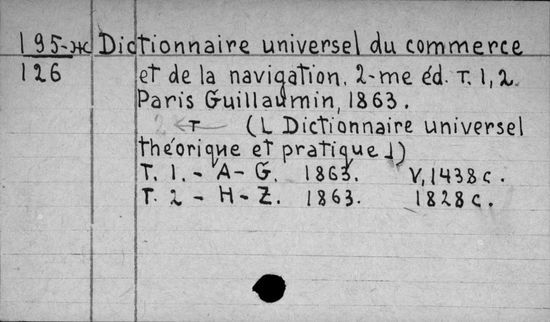 195-ж Dictionnaire universel du commerce
126 et de la navigation. 2-me éd. T. 1, 2.
Paris Guillaumin, 1863.
2 ← т (L Dictionnaire universel
théorique et pratique ⅃)
T. 1. - A - G. 1863. V, 1438 c.
T. 2 - H - Z. 1863. 1828 c.